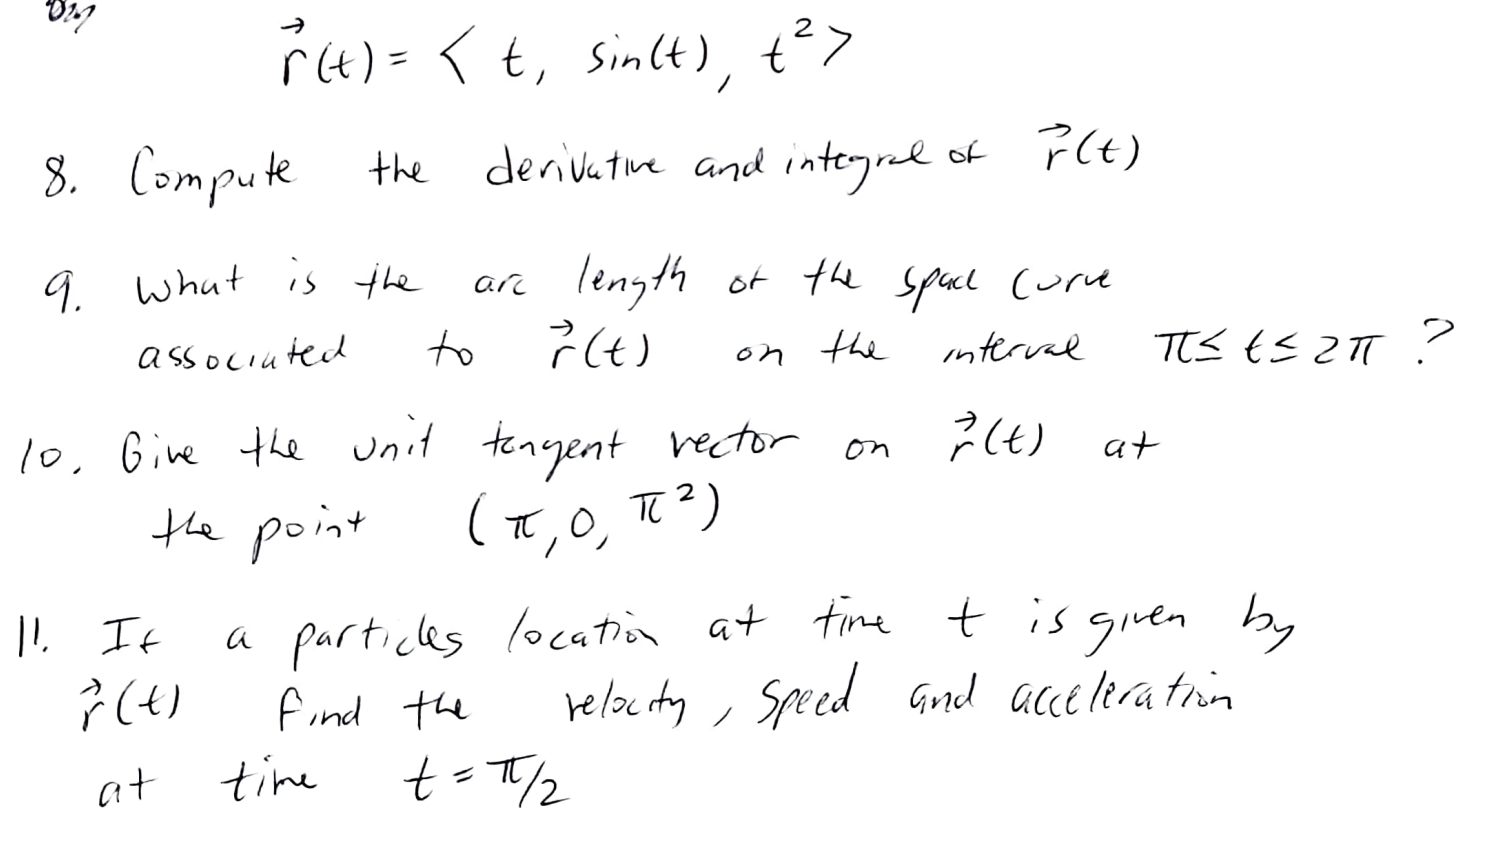 by
r⃗(t) = < t, sin(t), t²>
8. Compute the derivative and integral of r⃗(t)
9. What is the arc length of the space curve
associated to r⃗(t) on the interval π≤ t≤ 2π ?
10. Give the unit tangent vector on r⃗(t) at
the point (π, 0, π²)
11. If a particles location at time t is given by
r⃗(t) find the velocity, speed and acceleration
at time t = π/2